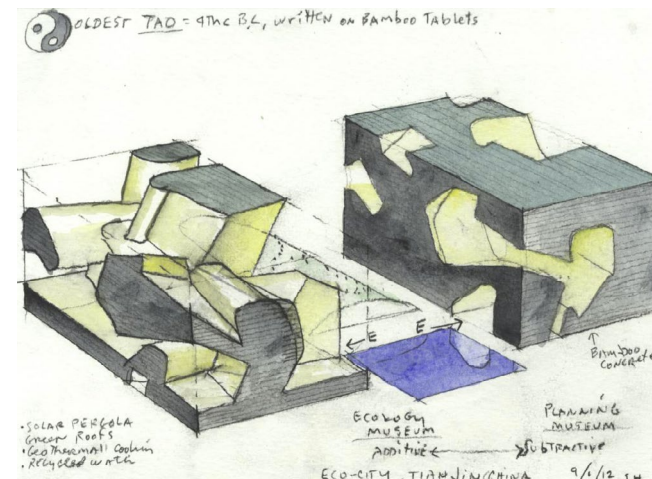 OLDEST TAO = 4THC B.C, written on BAMBOO TABLETS
E E
BAMBOO
CONCRETE
• SOLAR PERGOLA
Green Roofs
• GeoThermall Coolin
• Recycled water
ECOLOGY
MUSEUM
ADDITIVE
PLANNING
MUSEUM
SUBTRACTIVE
ECO-CITY TIANJIN CHINA 9/1/12 SH